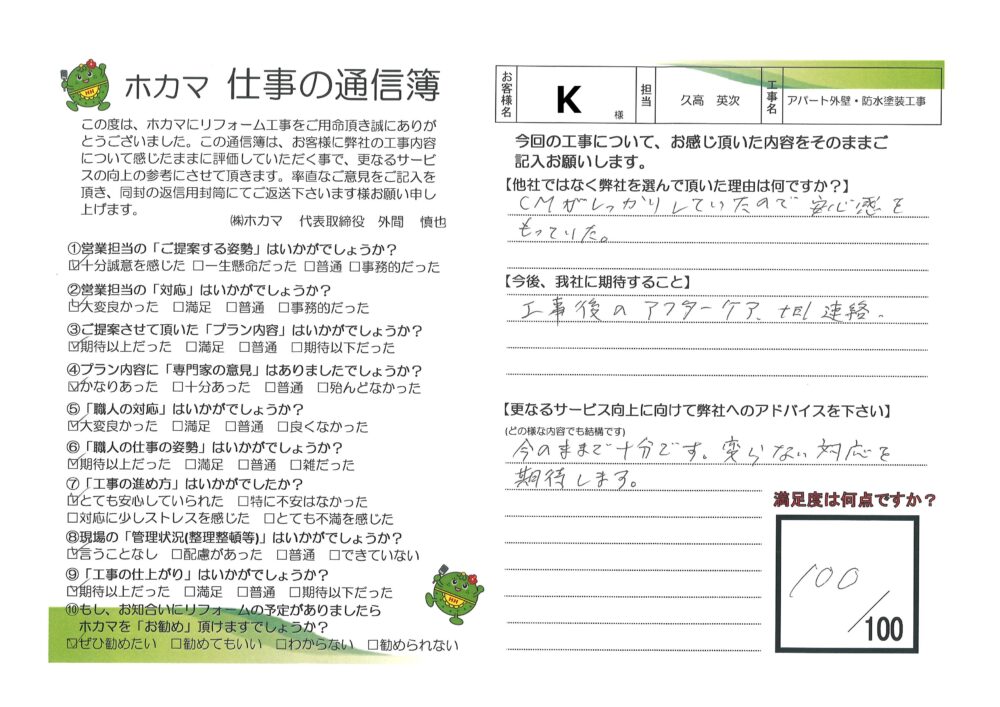 ホカマ 仕事の通信簿
この度は、ホカマにリフォーム工事をご用命頂き誠にありが
とうございました。この通信簿は、お客様に弊社の工事内容
について感じたままに評価していただく事で、更なるサービ
スの向上の参考にさせて頂きます。率直なご意見をご記入を
頂き、同封の返信用封筒にてご返送下さいます様お願い申し
上げます。
㈱ホカマ 代表取締役 外間 慎也
①営業担当の「ご提案する姿勢」はいかがでしょうか?
☑十分誠意を感じた □一生懸命だった □普通 □事務的だった
②営業担当の「対応」はいかがでしょうか?
☑大変良かった □満足 □普通 □事務的だった
③ご提案させて頂いた「プラン内容」はいかがでしょうか?
☑期待以上だった □満足 □普通 □期待以下だった
④プラン内容に「専門家の意見」はありましたでしょうか?
☑かなりあった □十分あった □普通 □殆んどなかった
⑤「職人の対応」はいかがでしょうか?
☑大変良かった □満足 □普通 □良くなかった
⑥「職人の仕事の姿勢」はいかがでしょうか?
☑期待以上だった □満足 □普通 □雑だった
⑦「工事の進め方」はいかがでしたか?
☑とても安心していられた □特に不安はなかった
□対応に少しストレスを感じた □とても不満を感じた
⑧現場の「管理状況(整理整頓等)」はいかがでしょうか?
☑言うことなし □配慮があった □普通 □できていない
⑨「工事の仕上がり」はいかがでしょうか?
☑期待以上だった □満足 □普通 □期待以下だった
⑩もし、お知合いにリフォームの予定がありましたら
ホカマを「お勧め」頂けますでしょうか?
☑ぜひ勧めたい □勧めてもいい □わからない □勧められない
お客様名 K 様 担当 久高 英次 工事名 アパート外壁・防水塗装工事
今回の工事について、お感じ頂いた内容をそのままご
記入お願いします。
【他社ではなく弊社を選んで頂いた理由は何ですか?】
CMがしっかりしていたので安心感を
もっていた。
【今後、我社に期待すること】
工事後のアフターケア、tel連絡。
【更なるサービス向上に向けて弊社へのアドバイスを下さい】
(どの様な内容でも結構です)
今のままで十分です。変らない対応を
期待します。
満足度は何点ですか?
100
/100